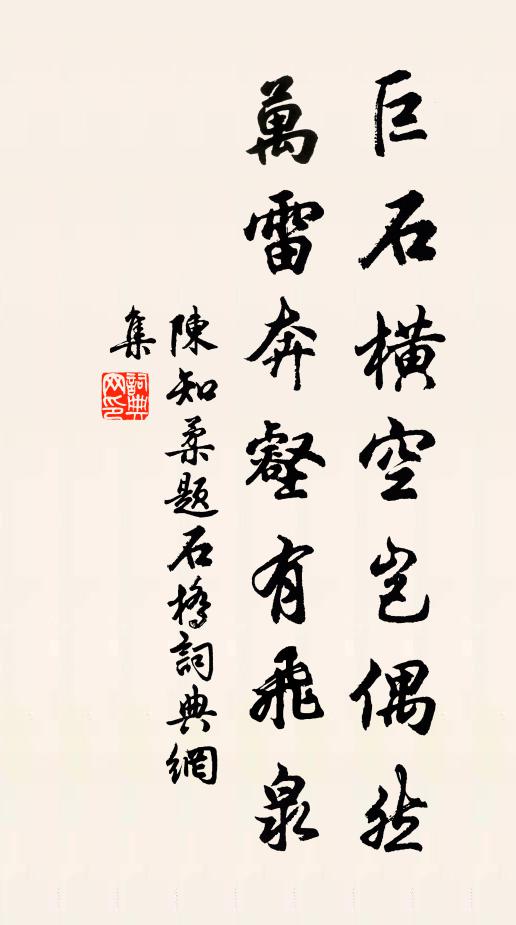 巨石橫空岂偶然
萬雷奔壑有飛泉
陳知柔題石橋詞典網
集
詞典
网印